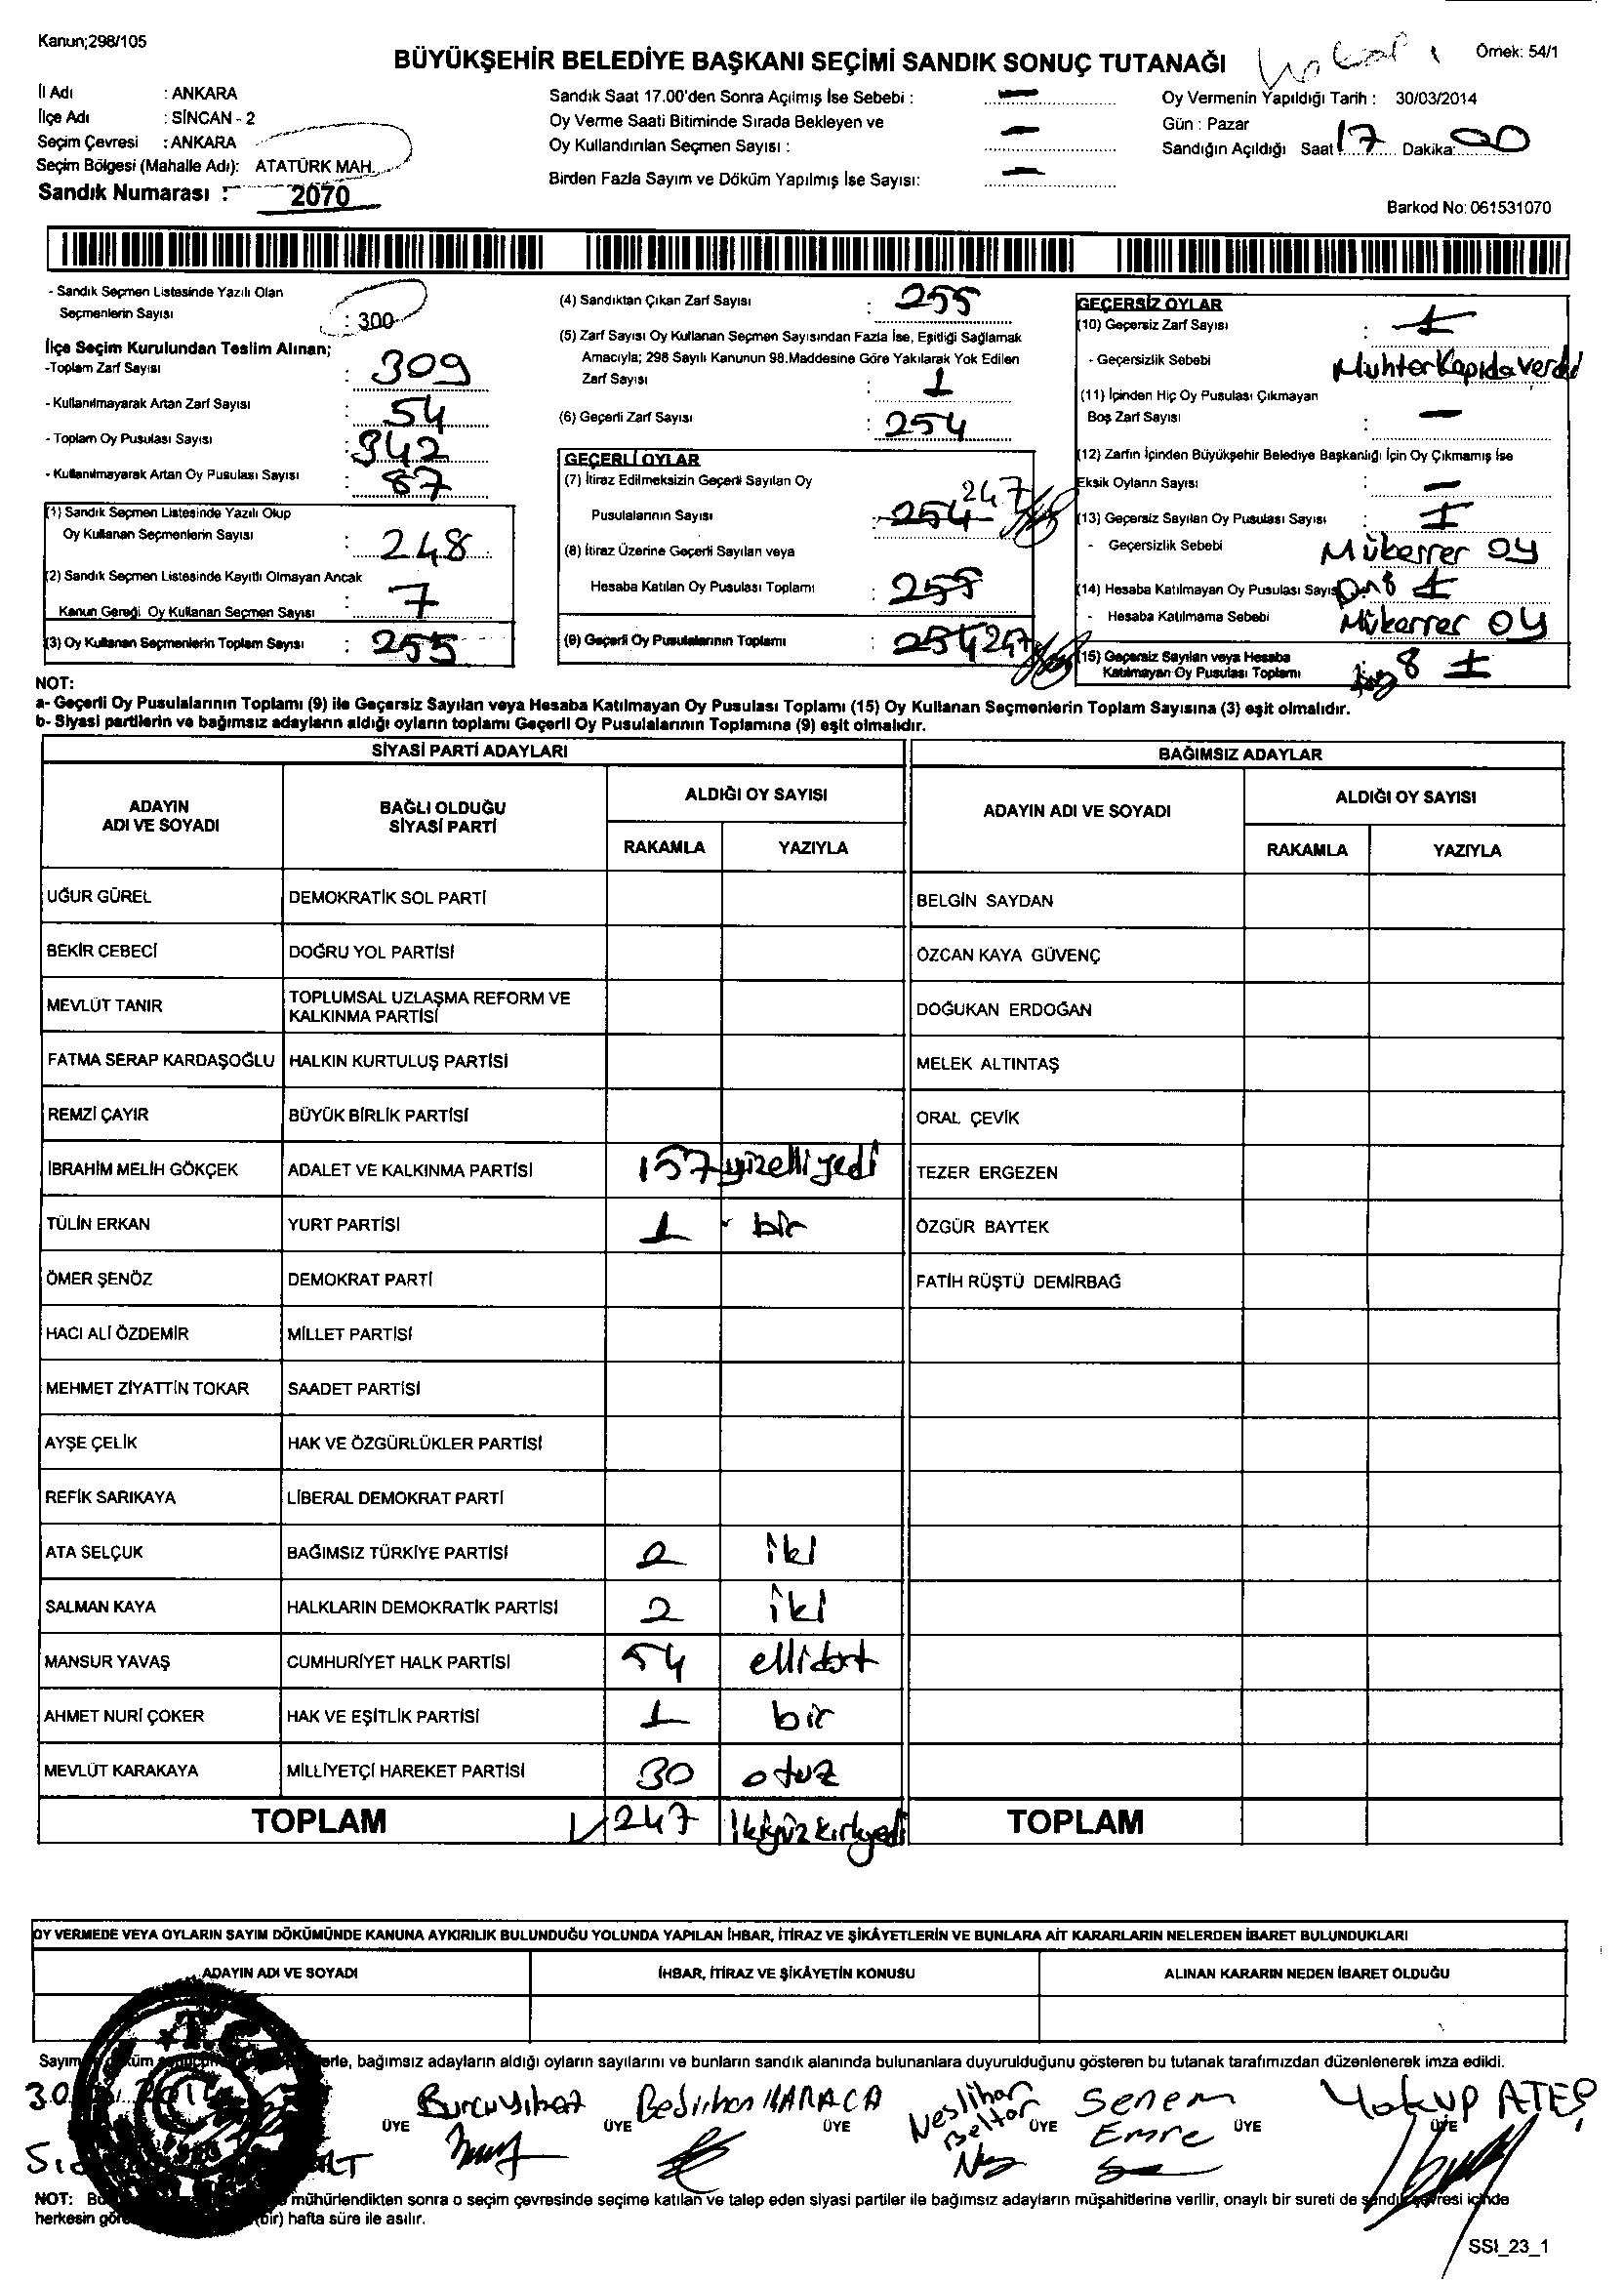 Kanun;298/105
BÜYÜKŞEHİR BELEDİYE BAŞKANI SEÇİMİ SANDIK SONUÇ TUTANAĞI
Örnek: 54/1
İl Adı : ANKARA
İlçe Adı : SİNCAN - 2
Seçim Çevresi : ANKARA
Seçim Bölgesi (Mahalle Adı): ATATÜRK MAH.
Sandık Numarası : 2070
Sandık Saat 17.00'den Sonra Açılmış İse Sebebi : —
Oy Verme Saati Bitiminde Sırada Bekleyen ve
Oy Kullandırılan Seçmen Sayısı : —
Birden Fazla Sayım ve Döküm Yapılmış İse Sayısı: —
Oy Vermenin Yapıldığı Tarih : 30/03/2014
Gün : Pazar
Sandığın Açıldığı Saat 17 Dakika: 00
Barkod No: 061531070
- Sandık Seçmen Listesinde Yazılı Olan
Seçmenlerin Sayısı : 300
İlçe Seçim Kurulundan Teslim Alınan;
-Toplam Zarf Sayısı : 309
- Kullanılmayarak Artan Zarf Sayısı : 54
- Toplam Oy Pusulası Sayısı : 342
- Kullanılmayarak Artan Oy Pusulası Sayısı : 87
(1) Sandık Seçmen Listesinde Yazılı Olup
Oy Kullanan Seçmenlerin Sayısı : 248
(2) Sandık Seçmen Listesinde Kayıtlı Olmayan Ancak
Kanun Gereği Oy Kullanan Seçmen Sayısı : 7
(3) Oy Kullanan Seçmenlerin Toplam Sayısı : 255
(4) Sandıktan Çıkan Zarf Sayısı : 255
(5) Zarf Sayısı Oy Kullanan Seçmen Sayısından Fazla İse, Eşitliği Sağlamak
Amacıyla; 298 Sayılı Kanunun 98.Maddesine Göre Yakılarak Yok Edilen
Zarf Sayısı : 1
(6) Geçerli Zarf Sayısı : 254
GEÇERLİ OYLAR
(7) İtiraz Edilmeksizin Geçerli Sayılan Oy
Pusulalarının Sayısı : 254 247
(8) İtiraz Üzerine Geçerli Sayılan veya
Hesaba Katılan Oy Pusulası Toplamı : 255
(9) Geçerli Oy Pusulalarının Toplamı : 254 247
GEÇERSİZ OYLAR
(10) Geçersiz Zarf Sayısı : 1
- Geçersizlik Sebebi Muhtar Kapıda verdi
(11) İçinden Hiç Oy Pusulası Çıkmayan
Boş Zarf Sayısı : —
(12) Zarfın İçinden Büyükşehir Belediye Başkanlığı İçin Oy Çıkmamış İse
Eksik Oyların Sayısı : —
(13) Geçersiz Sayılan Oy Pusulası Sayısı : 1
- Geçersizlik Sebebi Mükerrer oy
(14) Hesaba Katılmayan Oy Pusulası Sayısı 8 1
- Hesaba Katılmama Sebebi Mükerrer oy
(15) Geçersiz Sayılan veya Hesaba
Katılmayan Oy Pusulası Toplamı : 8 1
NOT:
a- Geçerli Oy Pusulalarının Toplamı (9) ile Geçersiz Sayılan veya Hesaba Katılmayan Oy Pusulası Toplamı (15) Oy Kullanan Seçmenlerin Toplam Sayısına (3) eşit olmalıdır.
b- Siyasi partilerin ve bağımsız adayların aldığı oyların toplamı Geçerli Oy Pusulalarının Toplamına (9) eşit olmalıdır.
SİYASİ PARTİ ADAYLARI
BAĞIMSIZ ADAYLAR
ADAYIN ADI VE SOYADI
BAĞLI OLDUĞU SİYASİ PARTİ
ALDIĞI OY SAYISI
RAKAMLA YAZIYLA
ADAYIN ADI VE SOYADI
ALDIĞI OY SAYISI
RAKAMLA YAZIYLA
UĞUR GÜREL DEMOKRATİK SOL PARTİ BELGİN SAYDAN
BEKİR CEBECİ DOĞRU YOL PARTİSİ ÖZCAN KAYA GÜVENÇ
MEVLÜT TANIR TOPLUMSAL UZLAŞMA REFORM VE KALKINMA PARTİSİ DOĞUKAN ERDOĞAN
FATMA SERAP KARDAŞOĞLU HALKIN KURTULUŞ PARTİSİ MELEK ALTINTAŞ
REMZİ ÇAYIR BÜYÜK BİRLİK PARTİSİ ORAL ÇEVİK
İBRAHİM MELİH GÖKÇEK ADALET VE KALKINMA PARTİSİ 157 yüzelliyedi TEZER ERGEZEN
TÜLİN ERKAN YURT PARTİSİ 1 bir ÖZGÜR BAYTEK
ÖMER ŞENÖZ DEMOKRAT PARTİ FATİH RÜŞTÜ DEMİRBAĞ
HACI ALİ ÖZDEMİR MİLLET PARTİSİ
MEHMET ZİYATTİN TOKAR SAADET PARTİSİ
AYŞE ÇELİK HAK VE ÖZGÜRLÜKLER PARTİSİ
REFİK SARIKAYA LİBERAL DEMOKRAT PARTİ
ATA SELÇUK BAĞIMSIZ TÜRKİYE PARTİSİ 2 iki
SALMAN KAYA HALKLARIN DEMOKRATİK PARTİSİ 2 iki
MANSUR YAVAŞ CUMHURİYET HALK PARTİSİ 54 ellidört
AHMET NURİ ÇOKER HAK VE EŞİTLİK PARTİSİ 1 bir
MEVLÜT KARAKAYA MİLLİYETÇİ HAREKET PARTİSİ 30 otuz
TOPLAM 247 İkiyüzkırkyedi TOPLAM
OY VERMEDE VEYA OYLARIN SAYIM DÖKÜMÜNDE KANUNA AYKIRILIK BULUNDUĞU YOLUNDA YAPILAN İHBAR, İTİRAZ VE ŞİKÂYETLERİN VE BUNLARA AİT KARARLARIN NELERDEN İBARET BULUNDUKLARI
ADAYIN ADI VE SOYADI İHBAR, İTİRAZ VE ŞİKÂYETİN KONUSU ALINAN KARARIN NEDEN İBARET OLDUĞU
Sayım bağımsız adayların aldığı oyların sayılarını ve bunların sandık alanında bulunanlara duyurulduğunu gösteren bu tutanak tarafımızdan düzenlenerek imza edildi.
T.C.
Burcu Yılmaz Bedirhan KARACA Neslihan Beltar Senem Emre Yakup ATEŞ
ÜYE ÜYE ÜYE ÜYE ÜYE ÜYE
NOT: mühürlendikten sonra o seçim çevresinde seçime katılan ve talep eden siyasi partiler ile bağımsız adayların müşahitlerine verilir, onaylı bir sureti de sandık çevresi içinde
herkesin (bir) hafta süre ile asılır.
SSI_23_1